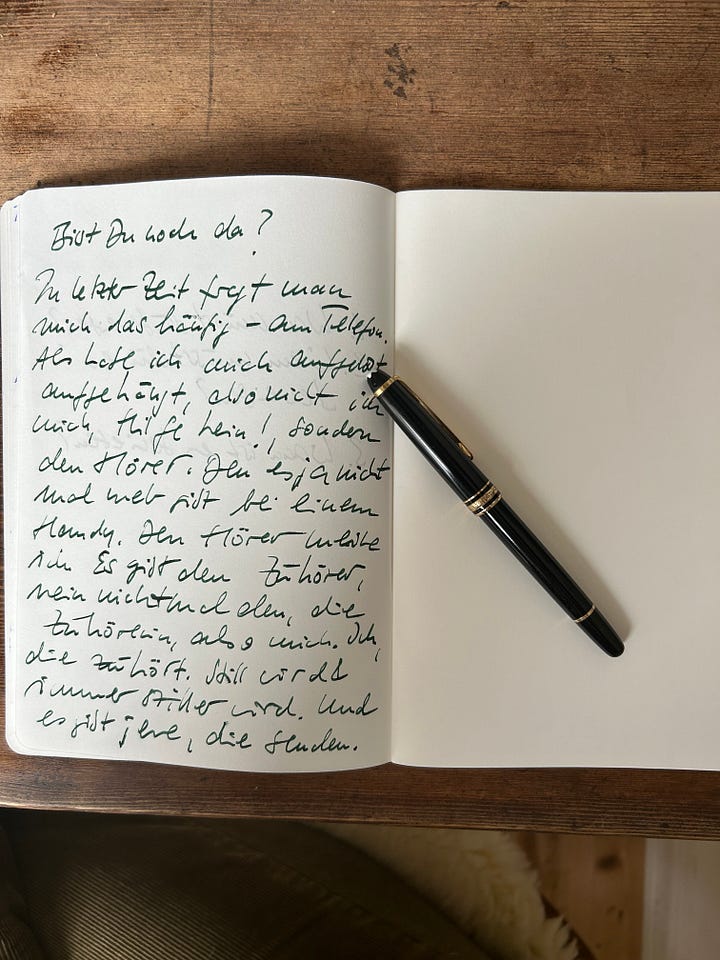 Bist Du noch da?
In letzter Zeit fragt man
mich das häufig – am Telefon.
Als habe ich mich aufgelöst
aufgehängt, also nicht ich
mich, Hilfe nein!, sondern
den Hörer. Den es ja nicht
mal mehr gibt bei einem
Handy. Den Hörer meine
ich. Es gibt den Zuhörer,
nein nicht mal den, die
Zuhörerin, also mich. Ich,
die zuhört. Still wird &
immer stiller wird. Und
es gibt jene, die senden.